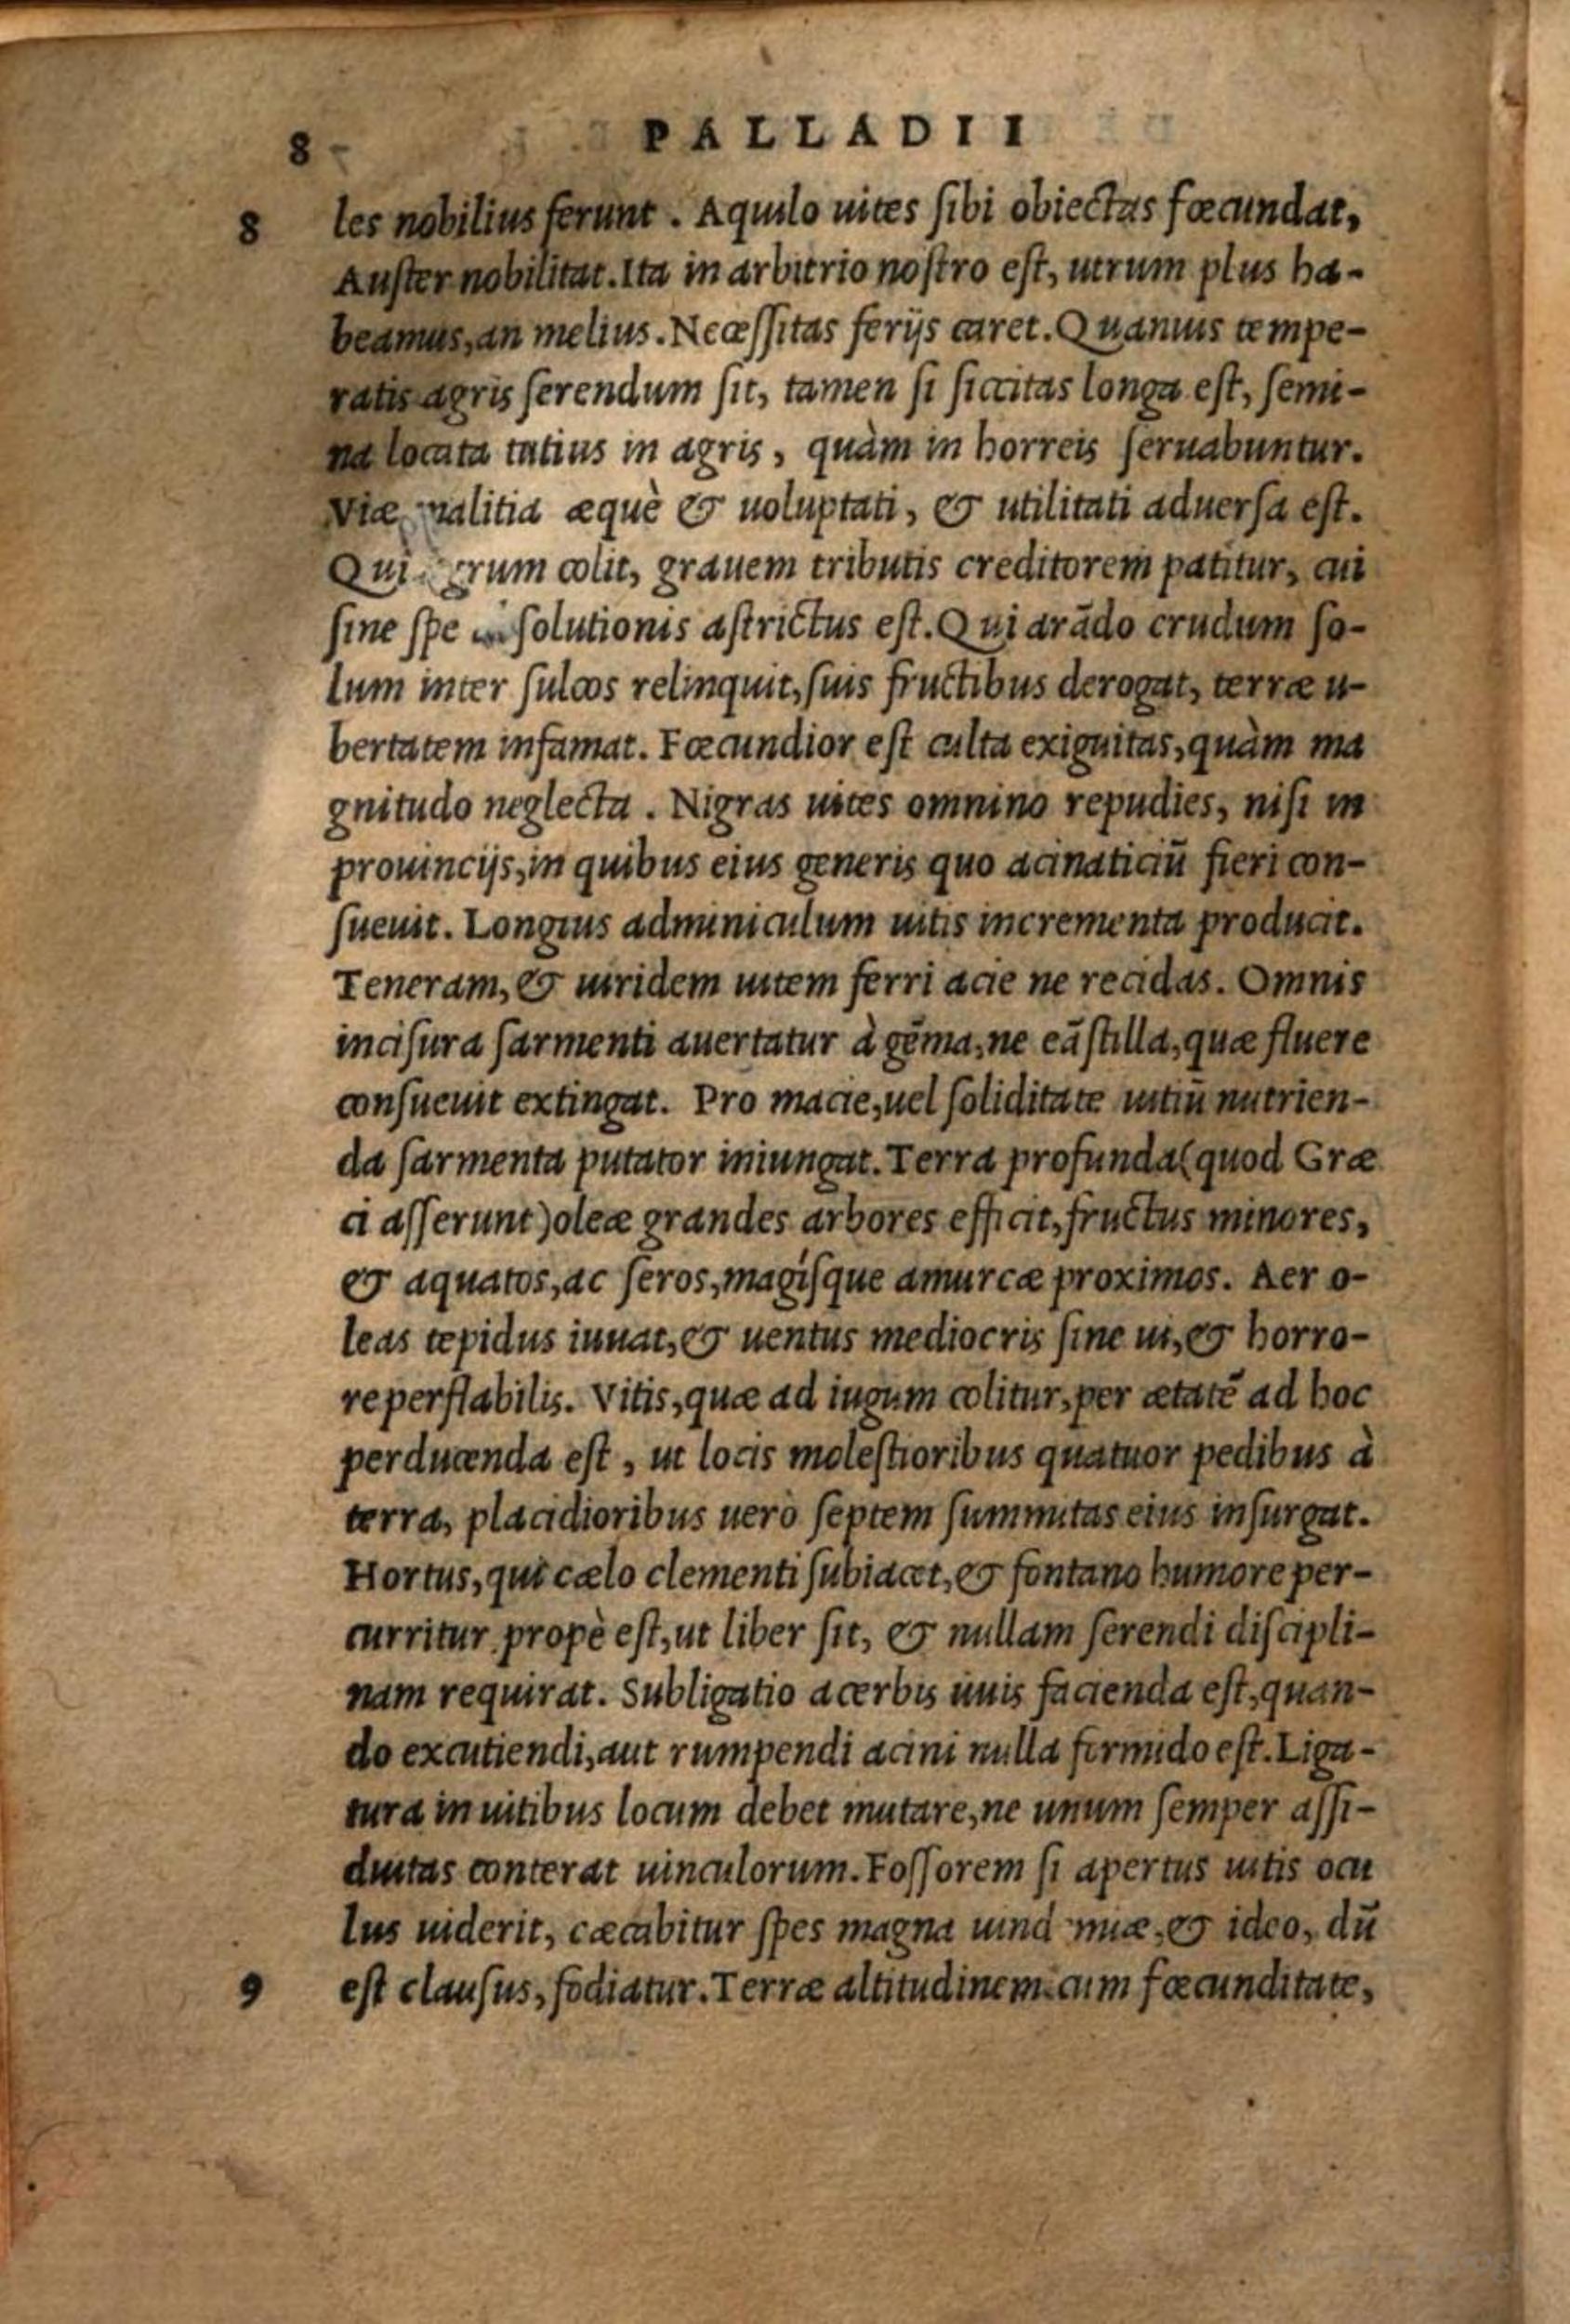 8 PALLADII
8 les nobilius ferunt . Aquilo uites sibi obiectas fœcundat,
Auster nobilitat. Ita in arbitrio nostro est, utrum plus ha-
beamus, an melius. Necessitas ferijs caret. Quamuis tempe-
ratis agris serendum sit, tamen si siccitas longa est, semi-
na locata tutius in agris, quàm in horreis seruabuntur.
Viæ malitia æquè & uoluptati, & utilitati aduersa est.
Qui grum colit, grauem tributis creditorem patitur, cui
sine spe solutionis astrictus est. Qui arādo crudum so-
lum inter sulcos relinquit, suis fructibus derogat, terræ u-
bertatem infamat. Fœcundior est culta exiguitas, quàm ma
gnitudo neglecta . Nigras uites omnino repudies, nisi in
prouincijs, in quibus eius generis quo acinaticiū fieri con-
sueuit. Longius adminiculum uitis incrementa producit.
Teneram, & uiridem uitem ferri acie ne recidas. Omnis
incisura sarmenti auertatur à gēma, ne eā stilla, quæ fluere
consueuit extingat. Pro macie, uel soliditate uitiū nutrien-
da sarmenta putator iniungat. Terra profunda (quod Græ
ci asserunt) oleæ grandes arbores efficit, fructus minores,
& aquatos, ac seros, magísque amurcæ proximos. Aer o-
leas tepidus iuuat, & uentus mediocris sine ui, & horro-
re perflabilis. Vitis, quæ ad iugum colitur, per ætatē ad hoc
perducenda est , ut locis molestioribus quatuor pedibus à
terra, placidioribus uerò septem summitas eius insurgat.
Hortus, qui cælo clementi subiacet, & fontano humore per-
curritur propè est, ut liber sit, & nullam serendi discipli-
nam requirat. Subligatio acerbis uuis facienda est, quan-
do excutiendi, aut rumpendi acini nulla formido est. Liga-
tura in uitibus locum debet mutare, ne unum semper assi-
duitas conterat uinculorum. Fossorem si apertus uitis ocu
lus uiderit, cæcabitur spes magna uindmiæ, & ideo, dū
9 est clausus, fodiatur. Terræ altitudinem cum fœcunditate,